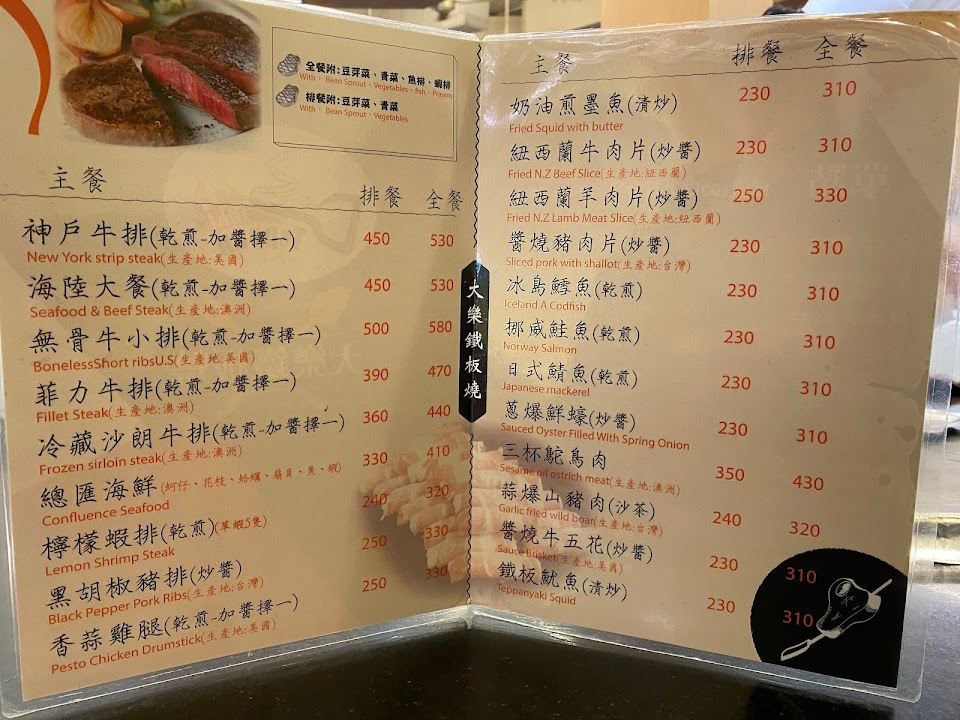 全餐附:豆芽菜、青菜、魚排、蝦排
With: Bean Sprout、Vegetables、fish、Prawns
排餐附:豆芽菜、青菜
With: Bean Sprout、Vegetables
主餐 排餐 全餐
神戶牛排(乾煎-加醬擇一) 450 530
New York strip steak(生產地:美國)
海陸大餐(乾煎-加醬擇一) 450 530
Seafood & Beef Steak(生產地:澳洲)
無骨牛小排(乾煎-加醬擇一) 500 580
BonelessShort ribsU.S(生產地:美國)
菲力牛排(乾煎-加醬擇一) 390 470
Fillet Steak(生產地:澳洲)
冷藏沙朗牛排(乾煎-加醬擇一) 360 440
Frozen sirloin steak(生產地:澳洲)
總匯海鮮(蚵仔、花枝、蛤蠣、扇貝、魚、蝦) 330 410
Confluence Seafood
檸檬蝦排(乾煎)(草蝦5隻) 240 320
Lemon Shrimp Steak
黑胡椒豬排(炒醬) 250 330
Black Pepper Pork Ribs(生產地:台灣)
香蒜雞腿(乾煎-加醬擇一) 250 330
Pesto Chicken Drumstick(生產地:美國)
大樂鐵板燒
主餐 排餐 全餐
奶油煎墨魚(清炒) 230 310
Fried Squid with butter
紐西蘭牛肉片(炒醬) 230 310
Fried N.Z Beef Slice(生產地:紐西蘭)
紐西蘭羊肉片(炒醬) 250 330
Fried N.Z Lamb Meat Slice(生產地:紐西蘭)
醬燒豬肉片(炒醬) 230 310
Sliced pork with shallot(生產地:台灣)
冰島鱈魚(乾煎) 230 310
Iceland A Codfish
挪威鮭魚(乾煎) 230 310
Norway Salmon
日式鯖魚(乾煎) 230 310
Japanese mackerel
蔥爆鮮蠔(炒醬) 230 310
Sauced Oyster Filled With Spring Onion
三杯鴕鳥肉 350 430
Sesame oil ostrich meat(生產地:澳洲)
蒜爆山豬肉(沙茶) 240 320
Garlic fried wild boar(生產地:台灣)
醬燒牛五花(炒醬) 230 310
Sauce Brisket(生產地:美國)
鐵板魷魚(清炒) 230 310
Teppanyaki Squid